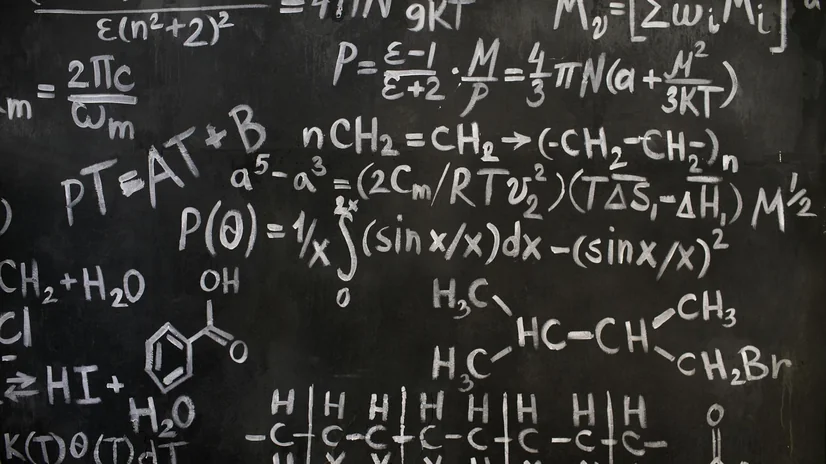 ε(n²+2)²
= 4πN
9KT
M_v = [Σω_i M_i]
m = 2πc/ω_m
P = ε-1/ε+2 · M/ρ = 4/3 πN(a + M²/3KT)
PT = AT + B
nCH₂ = CH₂ → (-CH₂-CH₂-)n
a⁵ - a³ = (2C_m/RTv₂²)(TΔS₁-ΔH₁)M^1/2
P(θ) = 1/x ∫₀^2x (sin x/x)dx - (sin x/x)²
CH₂ + H₂O
OH
O
Cl
⇄ HI + H₂O
H₃C CH₃
HC - CH
H₃C CH₂Br
K(T)θ(T)dT
H H H H H H H
-C-C-C-C-C-C-C-
O